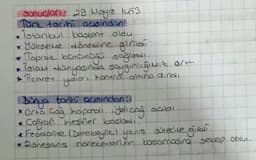 Sonuçları: 29 Mayıs 1453
Türk tarihi açısından:
* İstanbul başkent oldu
* Yükselme dönemine girildi
* Toprak bütünlüğü sağlandı
* İslam dünyasında saygınlığımız arttı
* Ticaret yolları kontrol altına alındı
Dünya tarihi açısından:
* Orta Çağ kapandı Yeniçağ açıldı
* Coğrafi keşifler başladı
* Feodalite (Derebeylik) yıkılış sürecine girdi
* Rönesans hareketlerinin başlamasına sebep oldu.